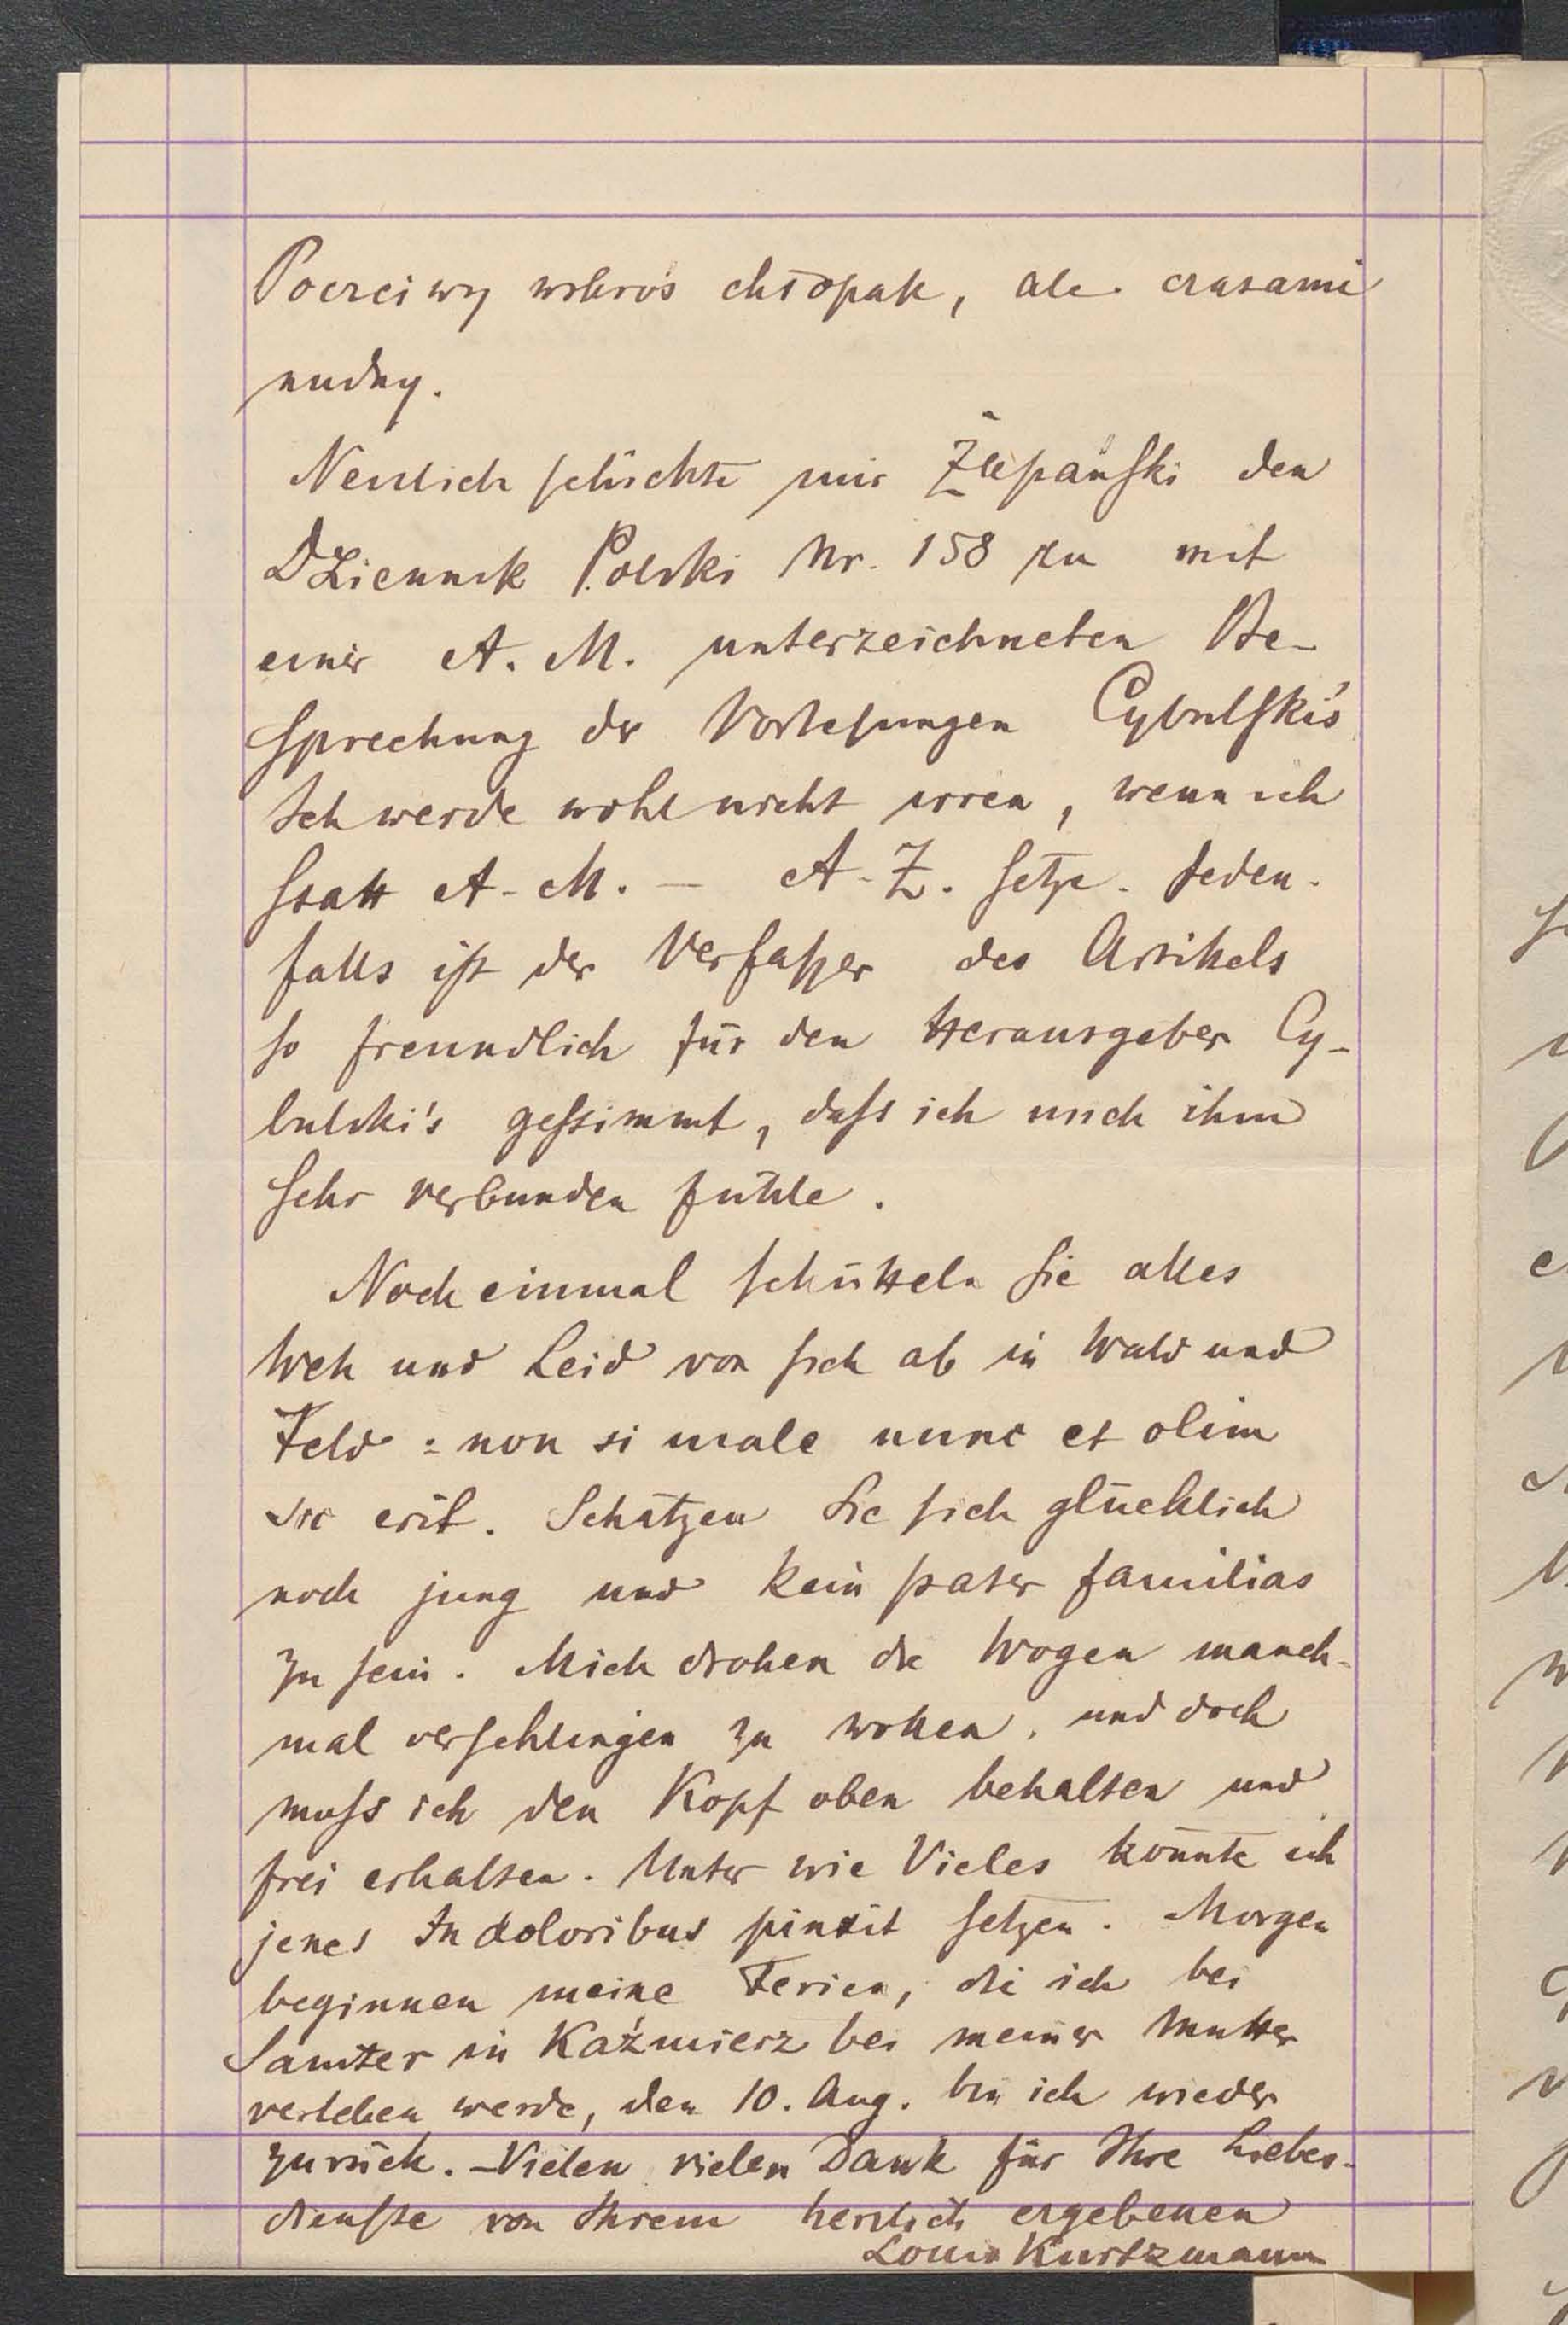 Poczciwy wskroś chłopak, ale czasami
nudny.
Neulich schickte mir Żupański den
Dziennik Polski Nr. 158 zu mit
einer A. M. unterzeichneten Be-
sprechung der Vorlesungen Cybulski's
Ich werde wohl nicht irren, wenn ich
statt A. M. — A. Z. setze. Jeden-
falls ist der Verfasser des Artikels
so freundlich für den Herausgeber Cy-
bulski's gestimmt, dass ich mich ihm
sehr verbunden fühle.
Noch einmal schütteln Sie alles
Weh und Leid von sich ab in Wald und
Feld: non si male nunc et olim
sic erit. Schätzen Sie sich glücklich
noch jung und kein pater familias
zu sein. Mich drohen die Wogen manch-
mal verschlingen zu wollen, und doch
muss ich den Kopf oben behalten und
frei erhalten. Unter wie Vieles könnte ich
jenes In doloribus pinxit setzen. Morgen
beginnen meine Ferien, die ich bei
Samter in Kaźmierz bei meiner Mutter
verleben werde, den 10. Aug. bin ich wieder
zurück. – Vielen vielen Dank für Ihre Liebes-
dienste von Ihrem herzlich ergebenen
Louis Kurtzmann